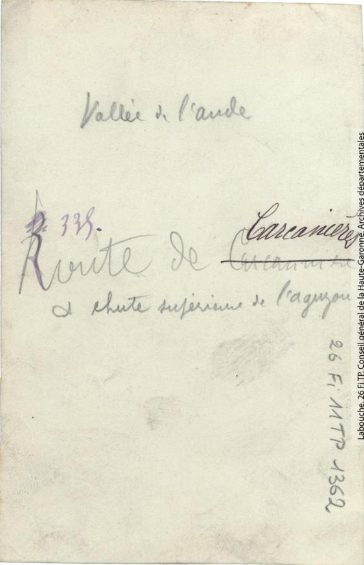 Vallée de l'aude
335.
Carcanières
Route de Carcanière
& chute supérieure de l'aguzou
26 Fi 11 TP 1362
Labouche. 26 Fi TP. Conseil général de la Haute-Garonne. Archives départementales